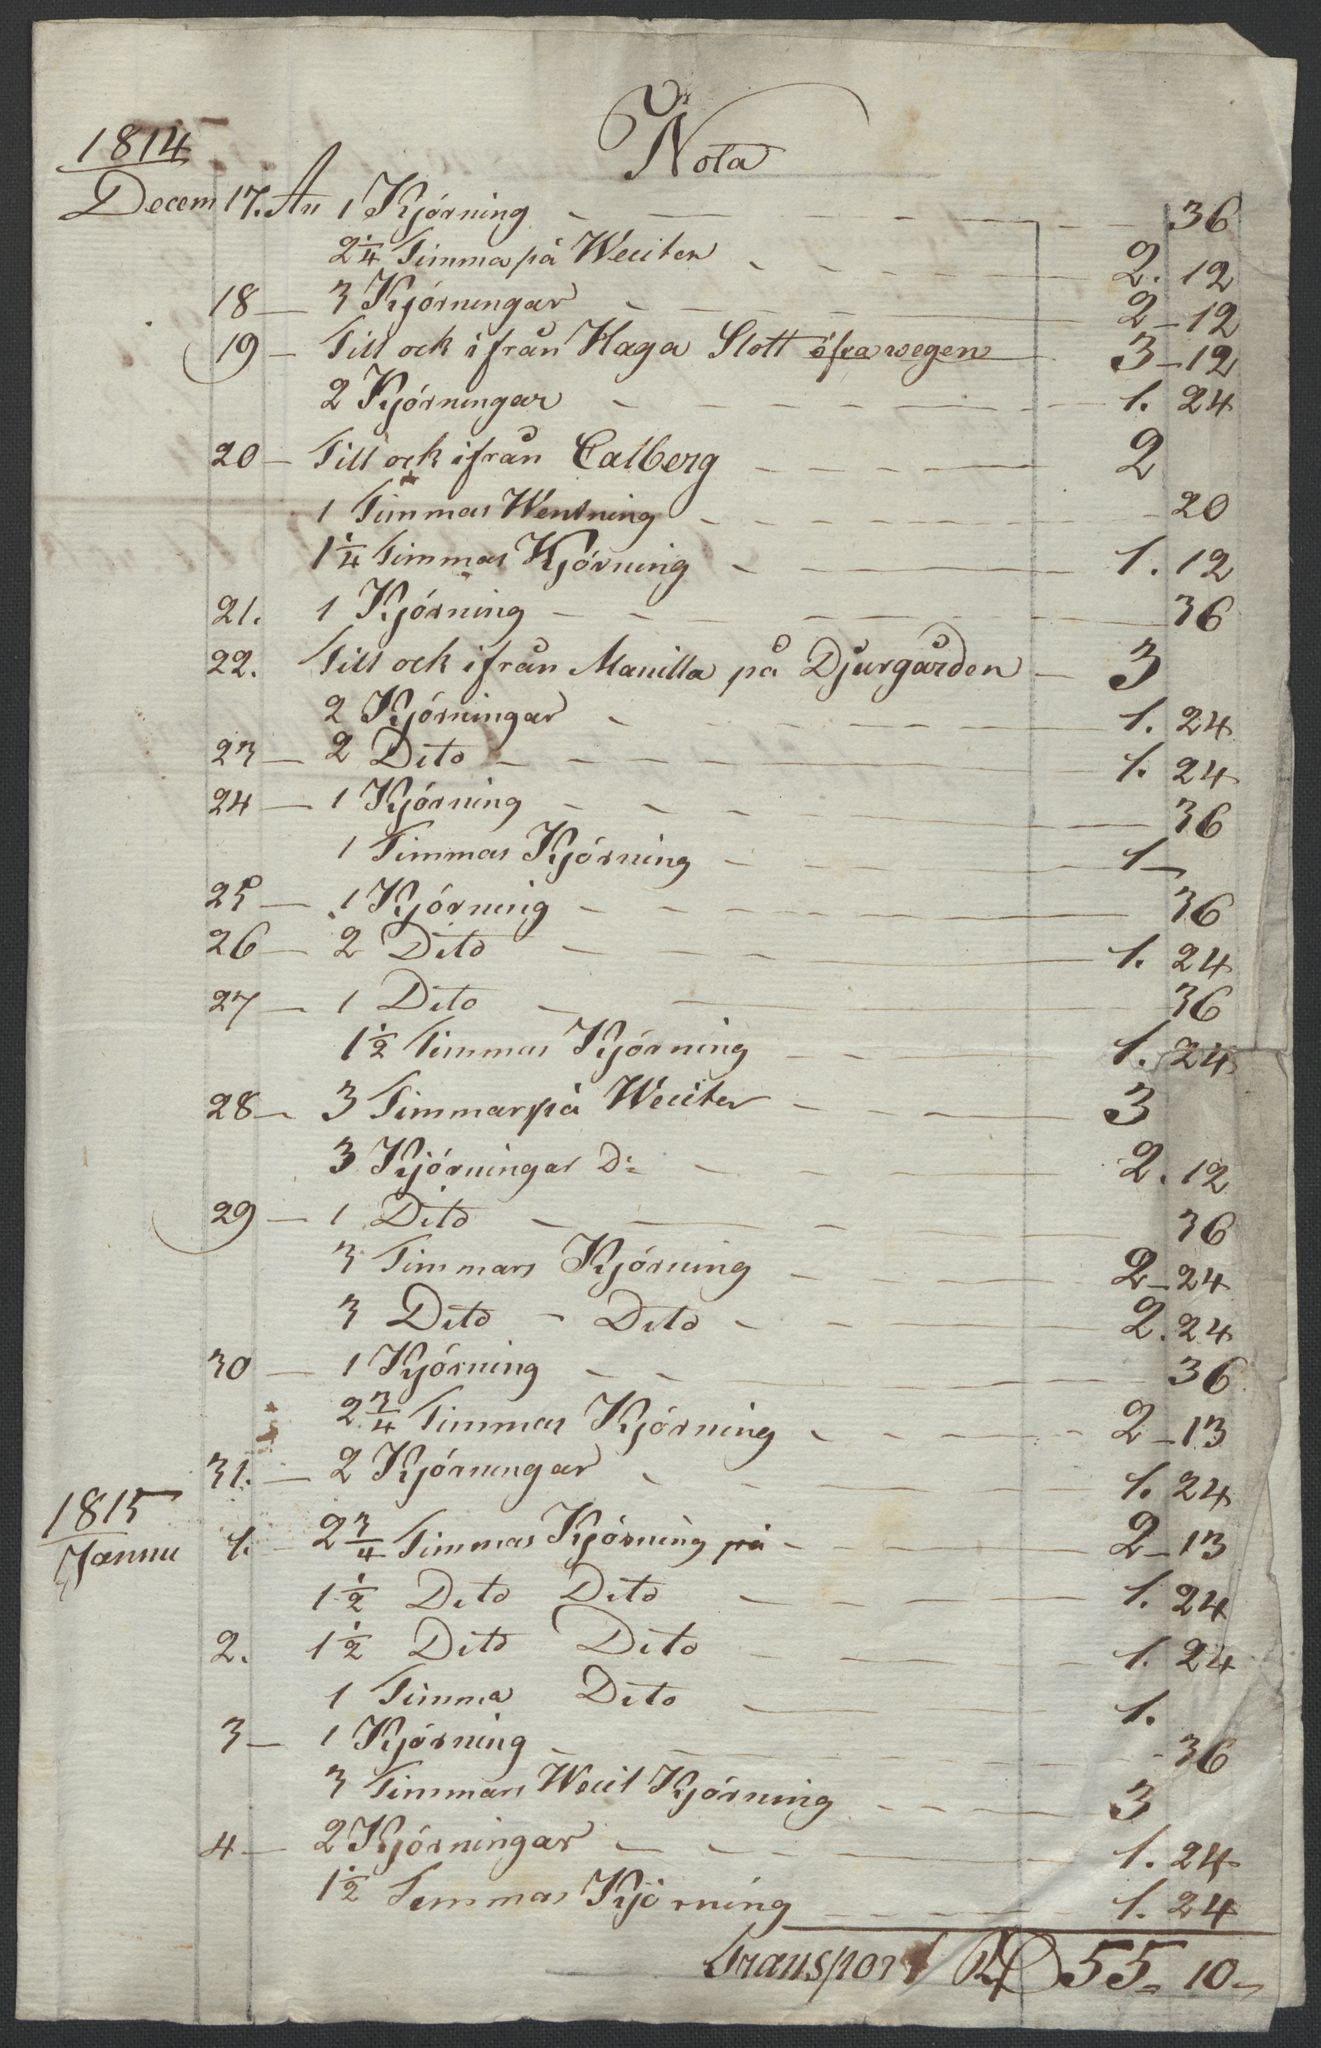 Nota
1814
Decem 17. An 1 Kjörning 36
2 1/4 Timma på Weciten 2. 12
18 3 Kjörningar 2 12
19 Till ock ifrån Haga Slott öfra wegen 3 12
2 Kjörningar 1. 24
20 Till ock ifrån Calberg 2
1 Timmas Wentning 20
1 1/4 Timmas Kjörning 1. 12
21. 1 Kjörning 36
22. Till ock ifrån Manilla på Djurgården 3
2 Kjörningar 1. 24
23 2 Dito 1. 24
24 1 Kjörning 36
1 Timmas Kjörning 1
25 1 Kjörning 36
26 2 Dito 1. 24
27 1 Dito 36
1 1/2 Timmas Kjörning 1. 24
28 3 Timmar på Weciter 3
3 Kjörningar D: 2. 12
29 1 Dito 36
3 Timmars Kjörning 2 24
3 Dito - Dito 2. 24
30 1 Kjörning 36
2 3/4 Timmas Kjörning 2 13
31. 2 Kjörningar 1. 24
1815
Jannu 1. 2 3/4 Timmas Kjörning på 2 13
1 1/2 Dito Dito 1. 24
2. 1 1/2 Dito Dito 1. 24
1 Timma Dito 1.
3 1 Kjörning 36
3 Timmars Wecit Kjörning 3
4 2 Kjörningar 1. 24
1 1/2 Temmas Kjörning 1. 24
Transport 55. 10